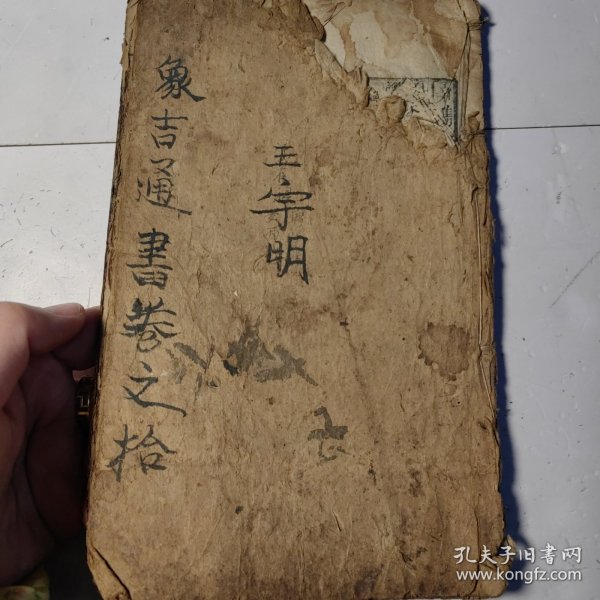 象吉通書卷之拾
王宇明
孔夫子旧书网
www.kongfz.com